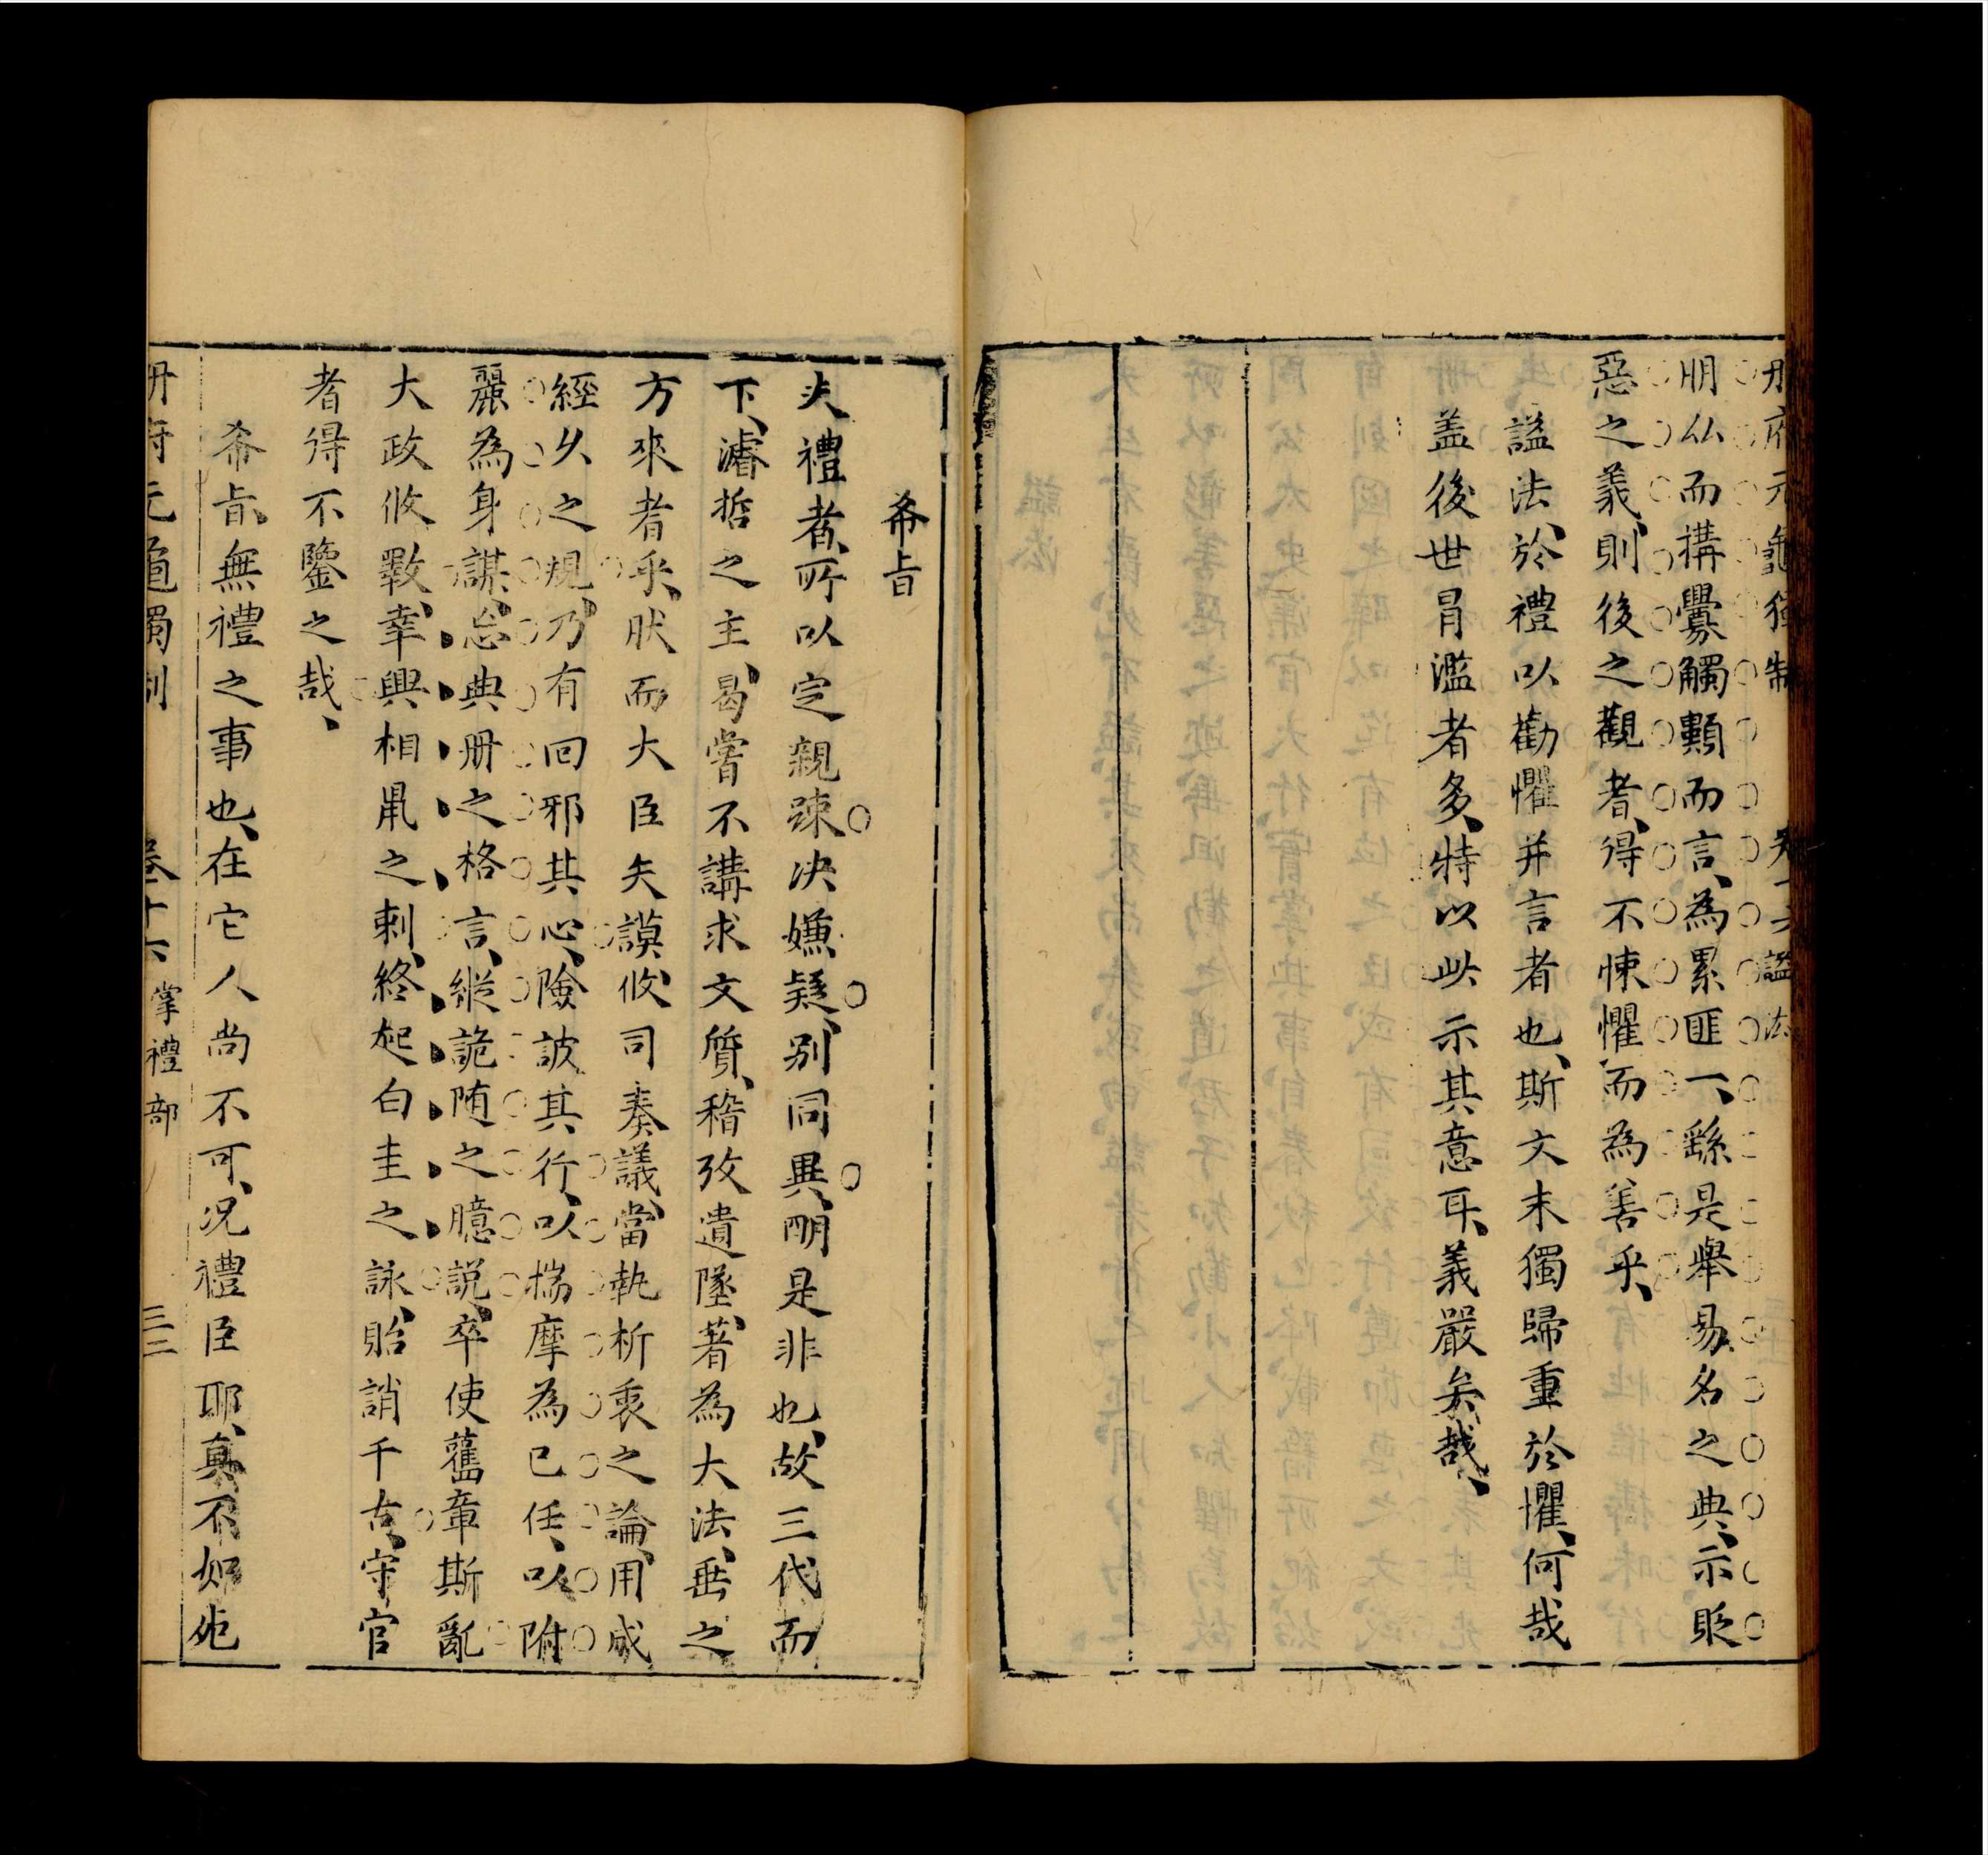 册府元龜獨制 卷十六諡法
朋仏而搆釁觸類而言、為累匪一、繇是舉易名之典、示貶
惡之義、則後之觀者、得不悚懼而為善乎、
諡法、於禮以勸懼并言者也、斯文末獨歸重於懼、何哉
盖後世冐濫者多、特以此示其意耳、義嚴矣哉、
希旨
夫禮者、所以定親踈决嫌疑、别同異、明是非也、故三代而
下、濬哲之主、曷嘗不講求文質、稽攷遺墜、著為大法、垂之
方來者乎、狀而大臣矢謨、攸司奏議、當執析衷之論、用成
經久之規、乃有回邪其心、險詖其行、以揣摩為已任、以附
麗為身謀、忘典册之格言、縱詭随之臆説、卒使舊章斯亂
大政攸斁、幸興相鼠之刺、終起白圭之詠、貽誚千古、守官
者得不鑒之哉、
希旨、無禮之事也、在它人尚不可、况禮臣耶、真不如他
册府元龜獨制 卷十六 掌禮部 三二